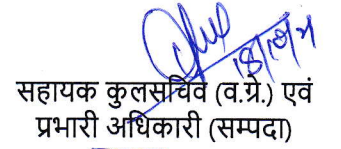 सहायक कुलसचिव (व.ग्रे.) एवं
प्रभारी अधिकारी (सम्पदा)